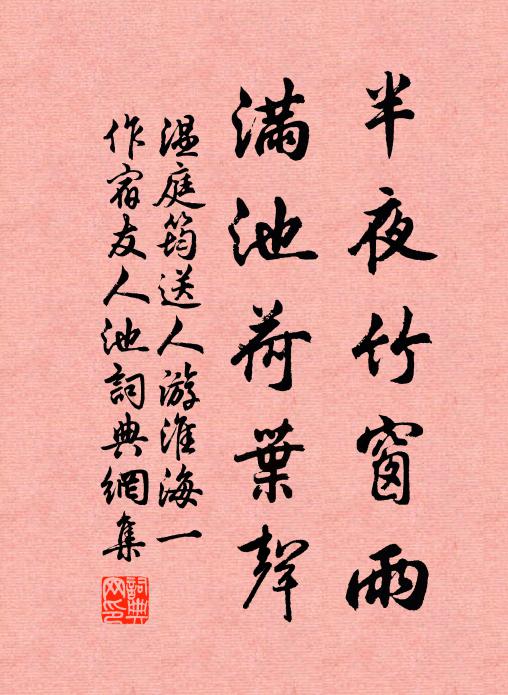 半夜竹窗雨
滿池荷葉聲
溫庭筠送人游淮海一
作宿友人池詞典網集
詞典
网印